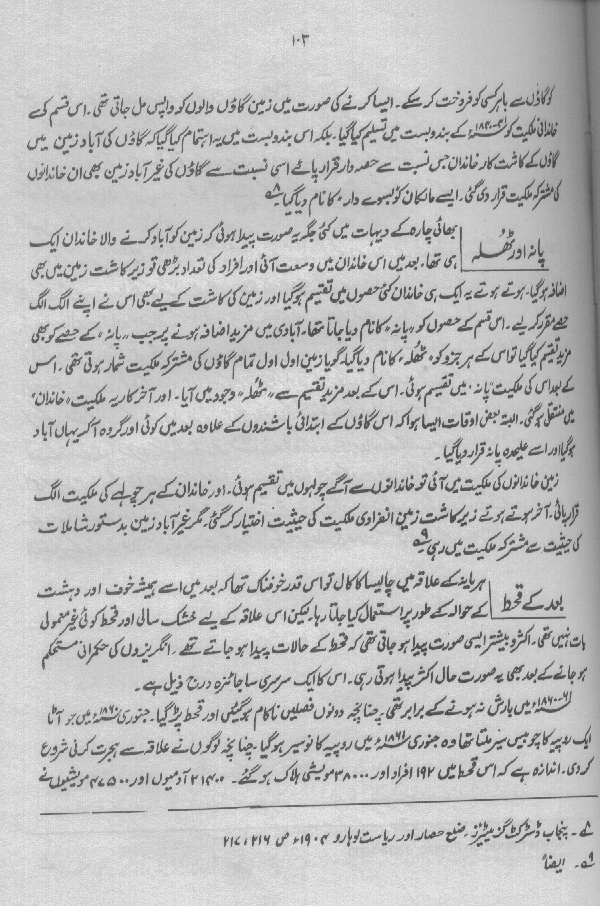 ۱۰۳
کو گاؤں سے باہر کسی کو فروخت کر سکے۔ ایسا کرنے کی صورت میں زمین گاؤں والوں کو واپس مل جاتی تھی۔ اس قسم کی
خاندانی ملکیت کو ۴۱-۱۸۴۰ء کے بندوبست میں تسلیم کیا گیا۔ بلکہ اس بندوبست میں یہ اہتمام کیا گیا کہ گاؤں کی آباد زمین میں
گاؤں کے کاشت کار خاندان جس نسبت سے حصہ دار قرار پائے اسی نسبت سے گاؤں کی غیر آباد زمین بھی ان خاندانوں
کی مشترکہ ملکیت قرار دی گئی۔ ایسے مالکان کو "بسوے دار" کا نام دیا گیا۔ ۸
پانہ اور ٹھُلہ
بھائی چارہ کے دیہات میں کئی جگہ یہ صورت پیدا ہوئی کہ زمین کو آباد کرنے والا خاندان ایک
ہی تھا۔ بعد میں اس خاندان میں وسعت آئی اور افراد کی تعداد بڑھی تو زیر کاشت زمین میں بھی
اضافہ ہو گیا۔ ہوتے ہوتے یہ ایک ہی خاندان کئی حصوں میں تقسیم ہو گیا اور زمین کی کاشت کے لیے بھی اس نے اپنے الگ الگ
حصے مقرر کر لیے۔ اس قسم کے حصوں کو "پانہ" کا نام دیا جاتا تھا۔ آبادی میں مزید اضافہ ہونے پر جب "پانہ" کے حصے کو بھی
مزید تقسیم کیا گیا تو اس کے ہر جزو کو "ٹھلہ" کا نام دیا گیا۔ گویا زمین اول اول تمام گاؤں کی مشترکہ ملکیت شمار ہوتی تھی۔ اس
کے بعد اس کی ملکیت "پانہ" میں تقسیم ہوئی۔ اس کے بعد مزید تقسیم سے "ٹھلہ" وجود میں آیا۔ اور آخر کار یہ ملکیت "خاندان"
میں منتقل ہو گئی۔ البتہ بعض اوقات ایسا ہوا کہ اس گاؤں کے ابتدائی باشندوں کے علاوہ بعد میں کوئی اور گروہ آ کر یہاں آباد
ہو گیا اور اسے علیحدہ پانہ قرار دیا گیا۔
زمین خاندانوں کی ملکیت میں آئی تو خاندانوں سے آگے چولہوں میں تقسیم ہوئی۔ اور خاندان کے ہر چولہے کی ملکیت الگ
قرار پائی، آخر ہوتے ہوتے زیر کاشت زمین انفرادی ملکیت کی حیثیت اختیار کر گئی۔ مگر غیر آباد زمین بدستور شاملات
کی حیثیت سے مشترکہ ملکیت میں رہی۔ ۹
بعد کے قحط
ہریانہ کے علاقہ میں چالیسا کا کال تو اس قدر خوفناک تھا کہ بعد میں اسے ہمیشہ خوف اور دہشت
کے حوالہ کے طور پر استعمال کیا جاتا رہا۔ لیکن اس علاقہ کے لیے خشک سالی اور قحط کوئی غیر معمولی
بات نہیں تھی۔ اکثر و بیشتر ایسی صورت پیدا ہو جاتی تھی کہ قحط کے حالات پیدا ہو جاتے تھے۔ انگریزوں کی حکمرانی مستحکم
ہو جانے کے بعد بھی یہ صورت حال اکثر پیدا ہوتی رہی۔ اس کا ایک سرسری سا جائزہ درج ذیل ہے۔
۶۱-۱۸۶۰ء میں بارش نہ ہونے کے برابر تھی۔ چنانچہ دونوں فصلیں ناکام ہو گئیں اور قحط پڑ گیا۔ جنوری ۱۸۶۰ء میں جو آٹا
ایک روپیہ کا چوبیس سیر ملتا تھا وہ جنوری ۱۸۶۱ء میں روپیہ کا نو سیر ہو گیا۔ چنانچہ لوگوں نے علاقہ سے ہجرت کرنی شروع
کر دی۔ اندازہ ہے کہ اس قحط میں ۱۹۲ افراد اور ۳۸۰۰۰ مویشی ہلاک ہو گئے۔ ۲۱۴۰۰ آدمیوں اور ۴۷۵۰۰ مویشیوں نے
۸۔ پنجاب ڈسٹرکٹ گزیٹیئرز۔ ضلع حصار اور ریاست لوہارو ۱۹۰۴ء ص ۲۱۶، ۲۱۷
۹۔ ایضاً